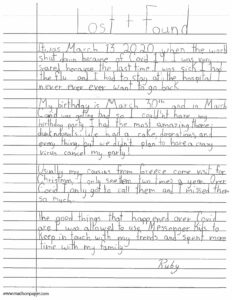 Lost + Found
It was March 13 2020, when the world
shut down because of Covid 19. I was very
scared because the last time I was sick I had
the flu and I had to stay at the hospital I
never ever ever want to go back.
My birthday is March 30th and in March
Covid was going bad so I couldn't have my
birthday party. I had the most amazing home
We had a cake, decorations and
every thing, but we didn't plan to have a crazy
virus cancel my party!
Usually my cousins from Greece come visit for
Christmas. I only see them two times a year. Over
Covid I only got to call them and I missed them
so much.
The good things that happened over Covid
are I was allowed to use Messenger Kids to
keep in touch with my friends and spent more
time with my family.
Ruby
www.madhornpager.com